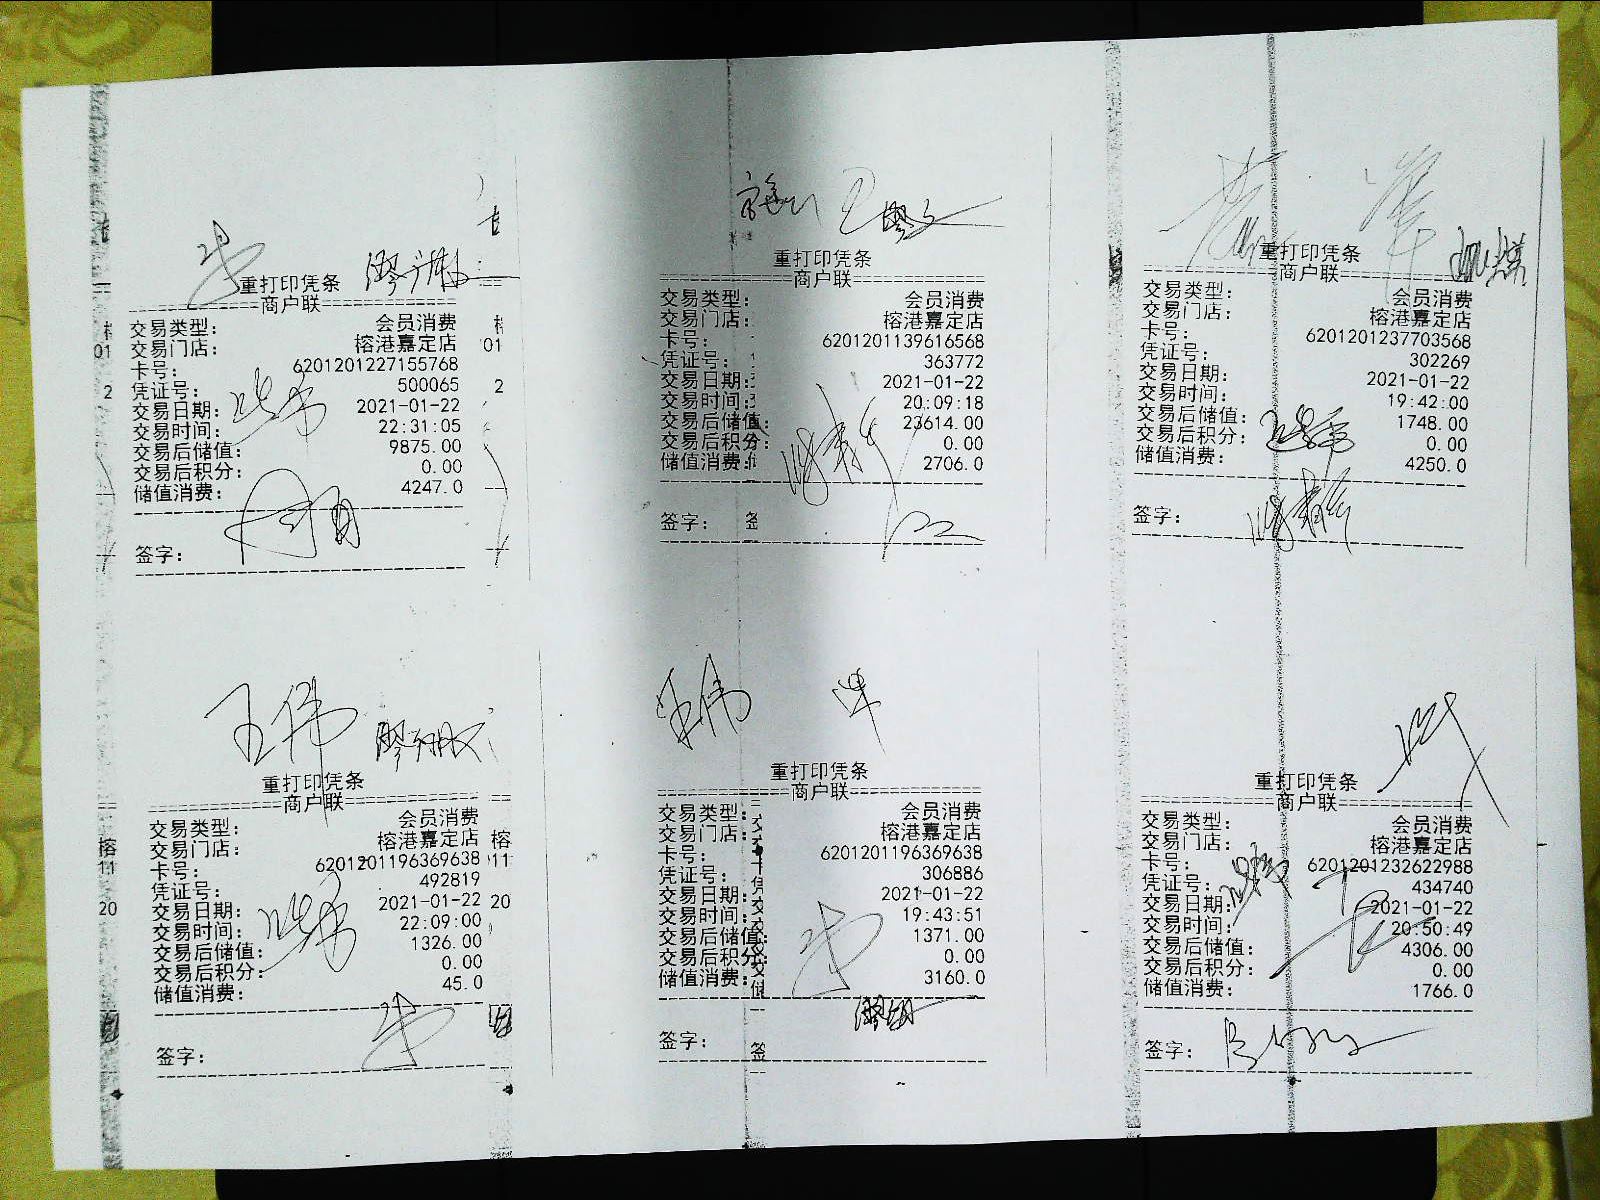 重打印凭条
商户联
交易类型： 会员消费
交易门店： 榕港嘉定店
卡号： 6201201227155768
凭证号： 500065
交易日期： 2021-01-22
交易时间： 22:31:05
交易后储值： 9875.00
交易后积分： 0.00
储值消费： 4247.0
签字：
重打印凭条
商户联
交易类型： 会员消费
交易门店： 榕港嘉定店
卡号： 6201201139616568
凭证号： 363772
交易日期： 2021-01-22
交易时间： 20:09:18
交易后储值： 23614.00
交易后积分： 0.00
储值消费： 2706.0
签字：
重打印凭条
商户联
交易类型： 会员消费
交易门店： 榕港嘉定店
卡号： 6201201237703568
凭证号： 302269
交易日期： 2021-01-22
交易时间： 19:42:00
交易后储值： 1748.00
交易后积分： 0.00
储值消费： 4250.0
签字：
王伟
重打印凭条
商户联
交易类型： 会员消费
交易门店： 榕港嘉定店
卡号： 6201201196369638
凭证号： 492819
交易日期： 2021-01-22
交易时间： 22:09:00
交易后储值： 1326.00
交易后积分： 0.00
储值消费： 45.0
签字：
王伟
重打印凭条
商户联
交易类型： 会员消费
交易门店： 榕港嘉定店
卡号： 6201201196369638
凭证号： 306886
交易日期： 2021-01-22
交易时间： 19:43:51
交易后储值： 1371.00
交易后积分： 0.00
储值消费： 3160.0
签字：
重打印凭条
商户联
交易类型： 会员消费
交易门店： 榕港嘉定店
卡号： 6201201232622988
凭证号： 434740
交易日期： 2021-01-22
交易时间： 20:50:49
交易后储值： 4306.00
交易后积分： 0.00
储值消费： 1766.0
签字：